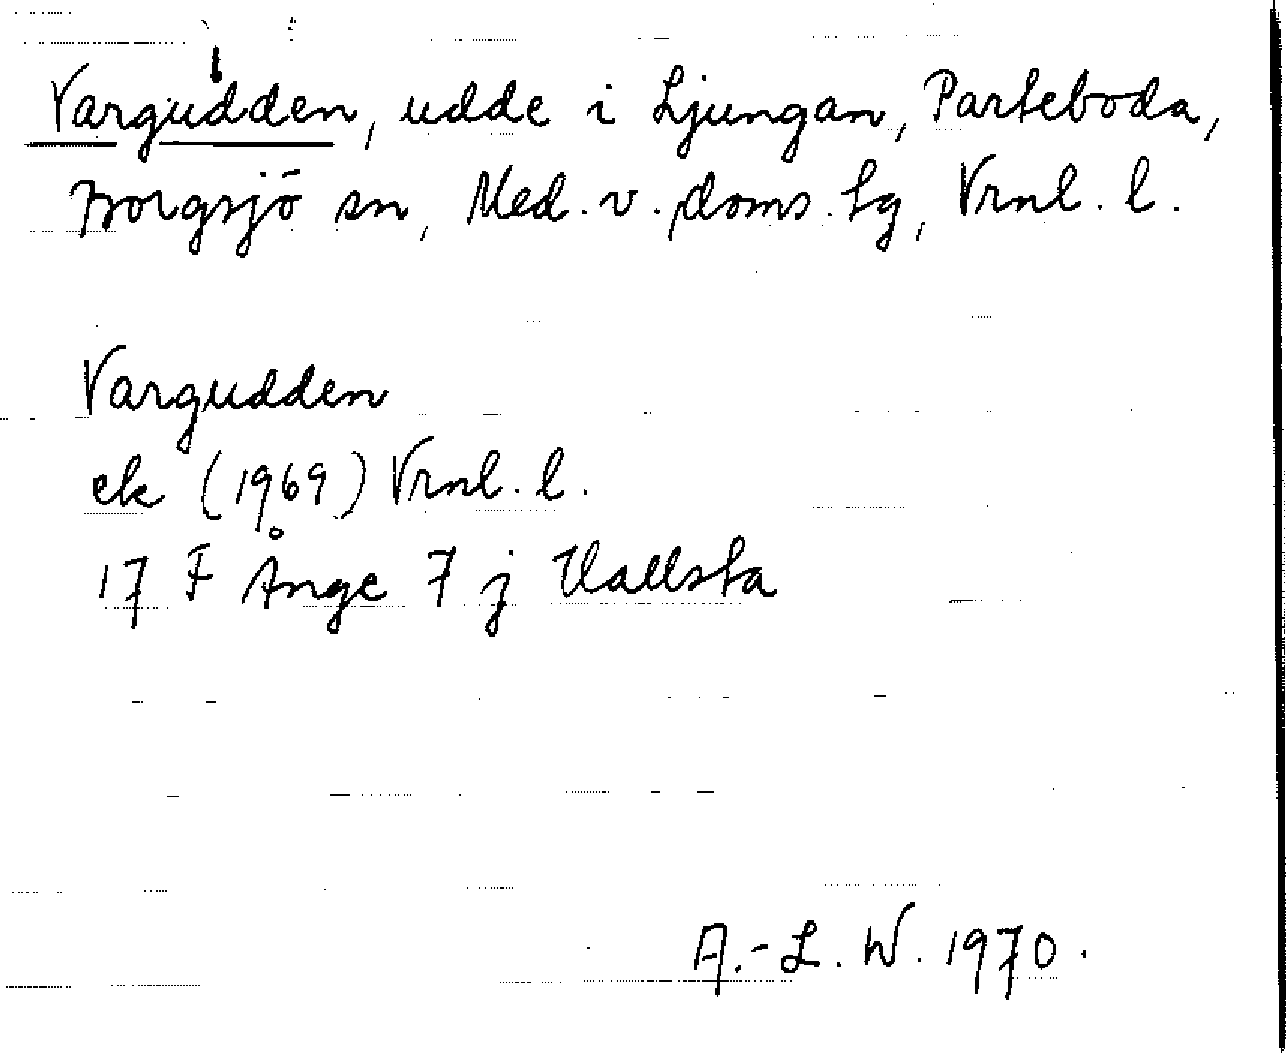 Vargudden, udde i Ljungan, Parteboda,
Borgsjö sn, Med. v. doms. tg, Vrnl. l.
Vargudden
ek (1969) Vrnl. l.
17 F Ånge 7 j Vallsta
A.-L. W. 1970.